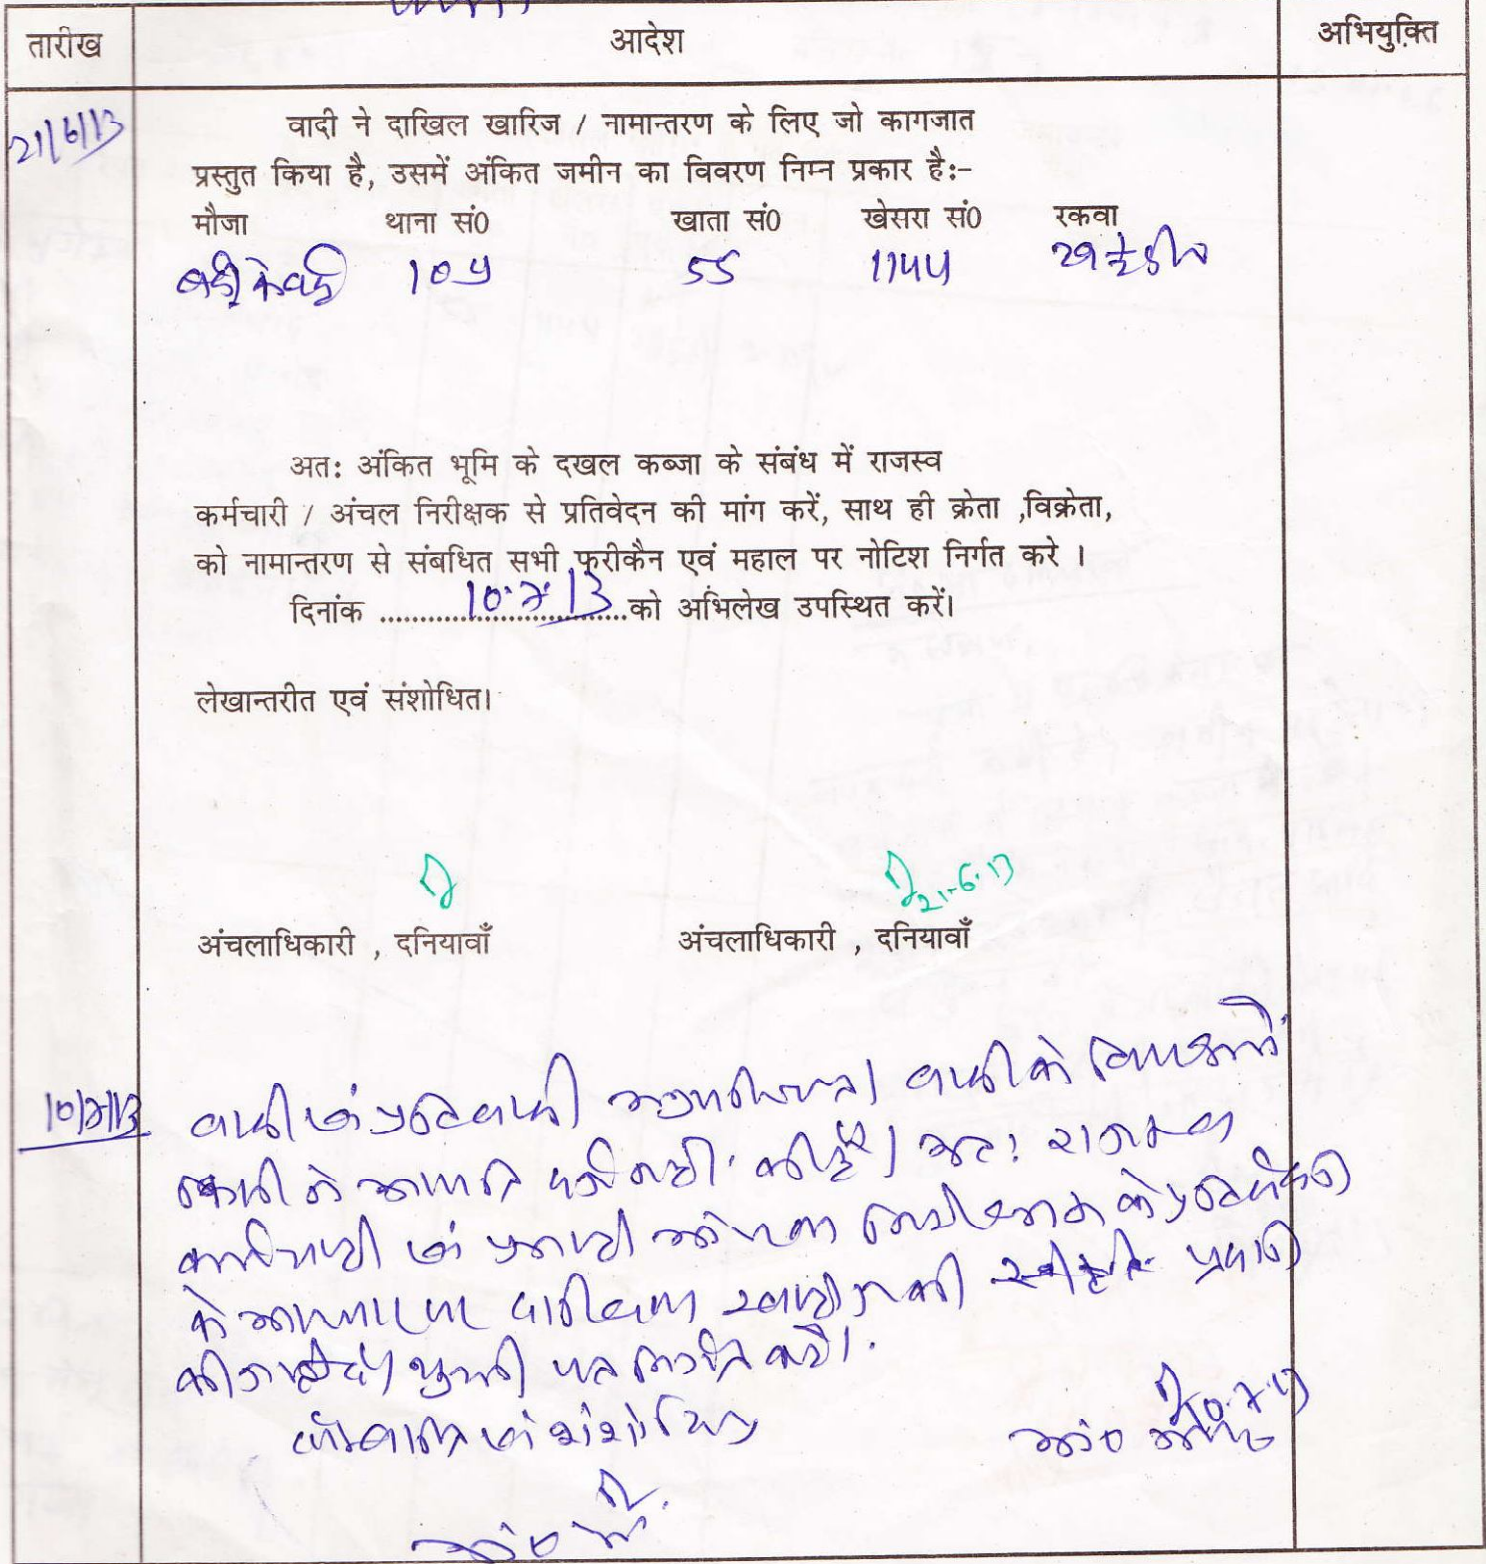 तारीख आदेश अभियुक्ति
21/6/13 वादी ने दाखिल खारिज / नामान्तरण के लिए जो कागजात
प्रस्तुत किया है, उसमें अंकित जमीन का विवरण निम्न प्रकार है:-
मौजा थाना सं0 खाता सं0 खेसरा सं0 रकवा
55
अत: अंकित भूमि के दखल कब्जा के संबंध में राजस्व
कर्मचारी / अंचल निरीक्षक से प्रतिवेदन की मांग करें, साथ ही क्रेता ,विक्रेता,
को नामान्तरण से संबधित सभी फरीकैन एवं महाल पर नोटिश निर्गत करे ।
दिनांक 10.7.13 को अभिलेख उपस्थित करें।
लेखान्तरीत एवं संशोधित।
21.6.13
अंचलाधिकारी , दनियावाँ अंचलाधिकारी , दनियावाँ
10/7/13 वादी एवं प्रतिवादी वादी के
किसी ने आपत्ति नहीं की है। अत: राजस्व
कर्मचारी एवं प्रभारी अंचल निरीक्षक के प्रतिवेदन
के आधार पर दाखिल खारीज की स्वीकृति प्रदान
की जाती है। शुद्धी पत्र निर्गत करें।
एवं संशोधित
10.7.13